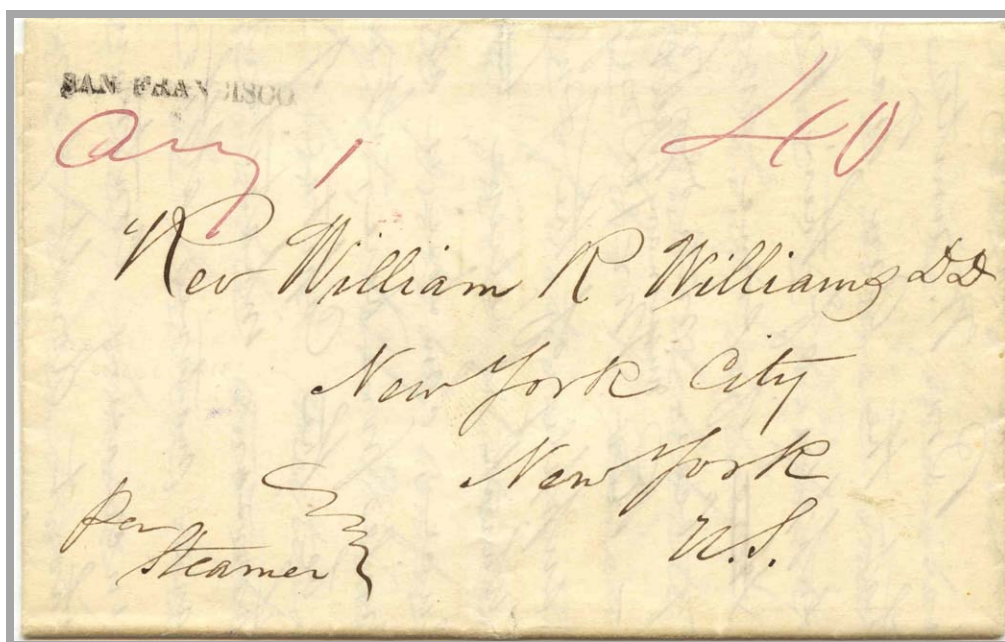 SAN FRANCISCO
Aug 1
40
Rev William R Williams DD
New York City
New York
U.S.
per
Steamer